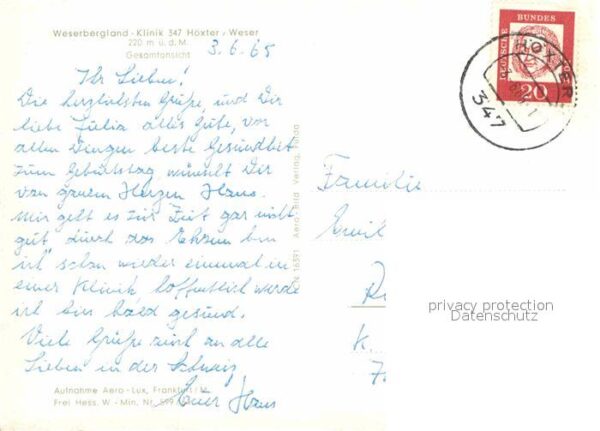 Weserbergland - Klinik 347 Höxter / Weser
220 m ü. d. M.
Gesamtansicht
3.6.65
Ihr Lieben!
Die herzlichsten Grüße, und Dir
liebe alles Gute, vor
allen Dingen beste Gesundheit
zum Geburtstag wünscht Dir
von ganzem Herzen Hans.
Mir geht es zur Zeit gar nicht
gut, durch das bin
ich schon wieder einmal in
einer Klinik hoffentlich werde
ich bin bald gesund.
Viele Grüße an alle
Lieben in der Schweiz
Euer Hans
Aufnahme Aero - Lux, Frankfurt/M.
Frei Hess. W - Min. Nr.
Aero - Bild Verlag, Fulda
DEUTSCHE
BUNDES
20
HÖXTER
347
Familie
Emil
K.
privacy protection
Datenschutz